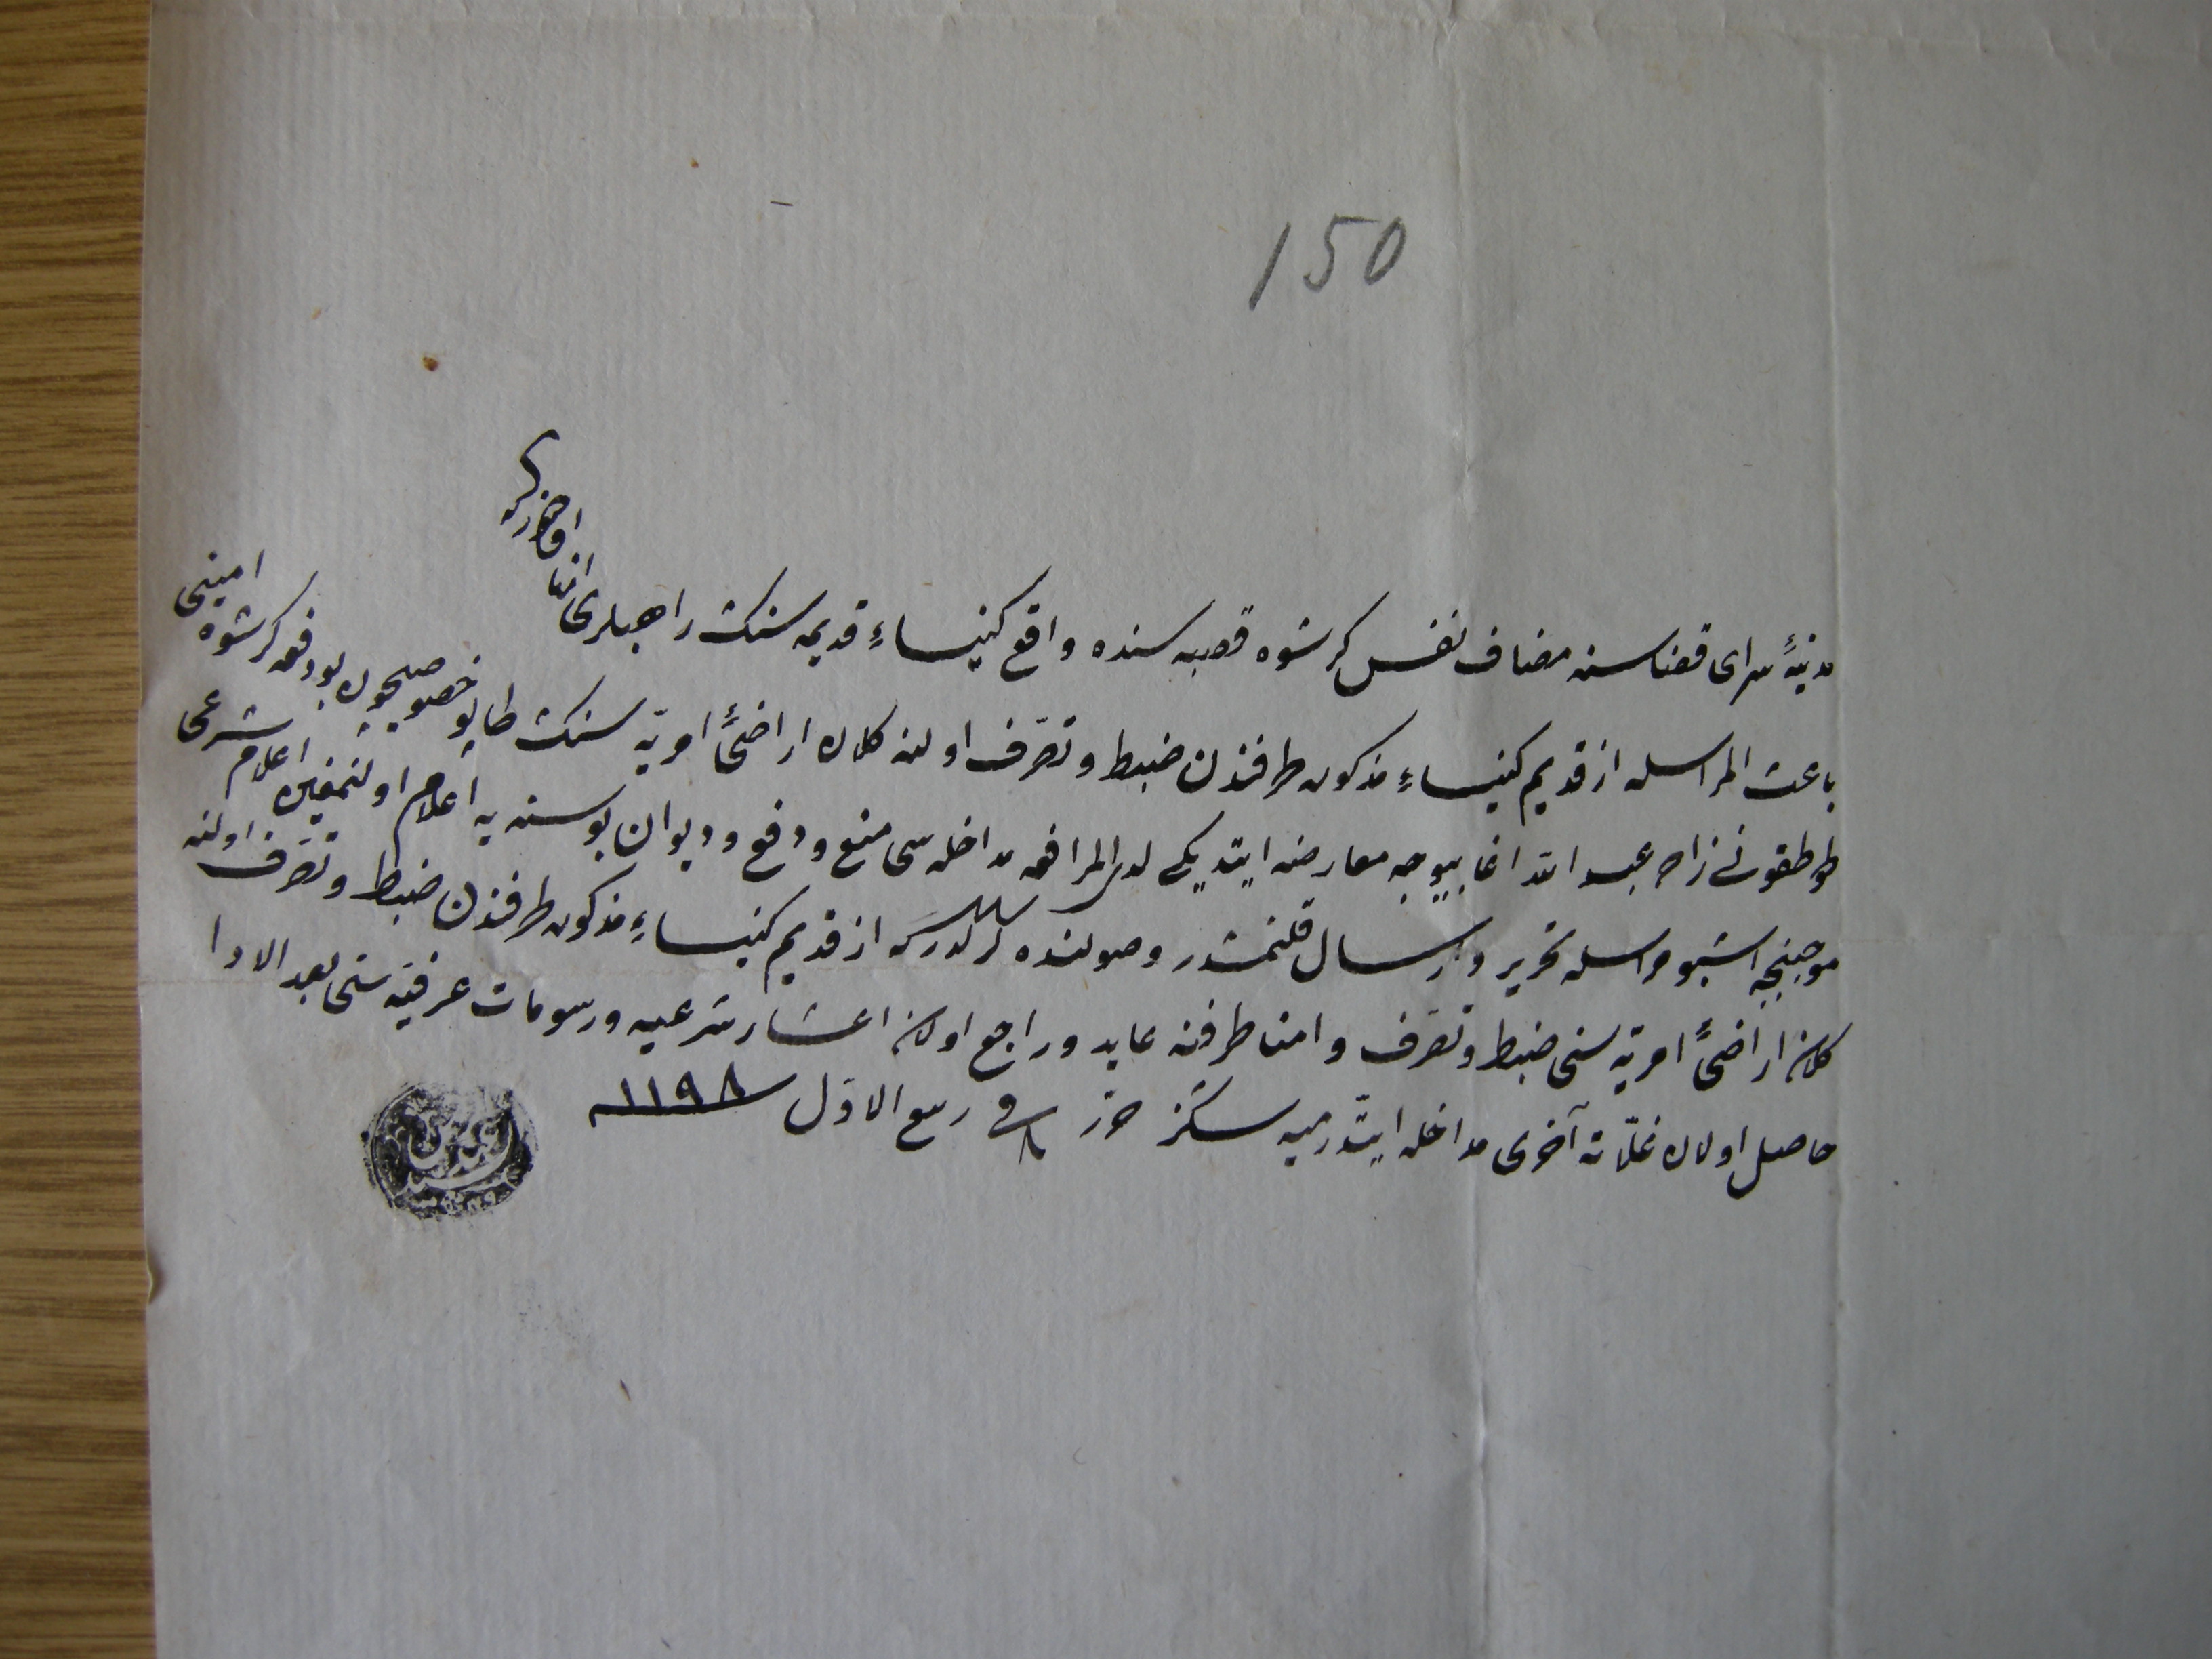 150
مدينۀ سراى قضاسنه مضاف نفس كرشوه قصبه سنده واقع كنيساءِ قديمه سنك راهبلرى انها
باعث المراسله از قديم كنيساءِ مذكور طرفندن ضبط و تصرّف اولنه كلان اراضئ اميريّه سنك طاپو خصوصيچون بودفعه كرشوه امينى
طوطقونى زاده عبد الله اغا بيوجه معارضه ايتديكى لدى المرافعه مداخله سى منع و دفع و ديوان بوسنه يه اعلام اولنمغين اعلام شرعى
موجبنجه اشبو مراسله تحرير و ارسال قلنمشدر وصولنده كركدركه از قديم كنيساءِ مذكور طرفندن ضبط و تصرّف اولنه
كلان اراضئ اميريّه سنى ضبط و تصرّف و امنا طرفنه عايد و راجع اولان اعشار شرعيه و رسومات عرفيّه سنى بعد الادا
حاصل اولان غلّاته آخرى مداخله ايتدرميه سكز حرّر فى ربيع الاوّل سنه ١١٩٨